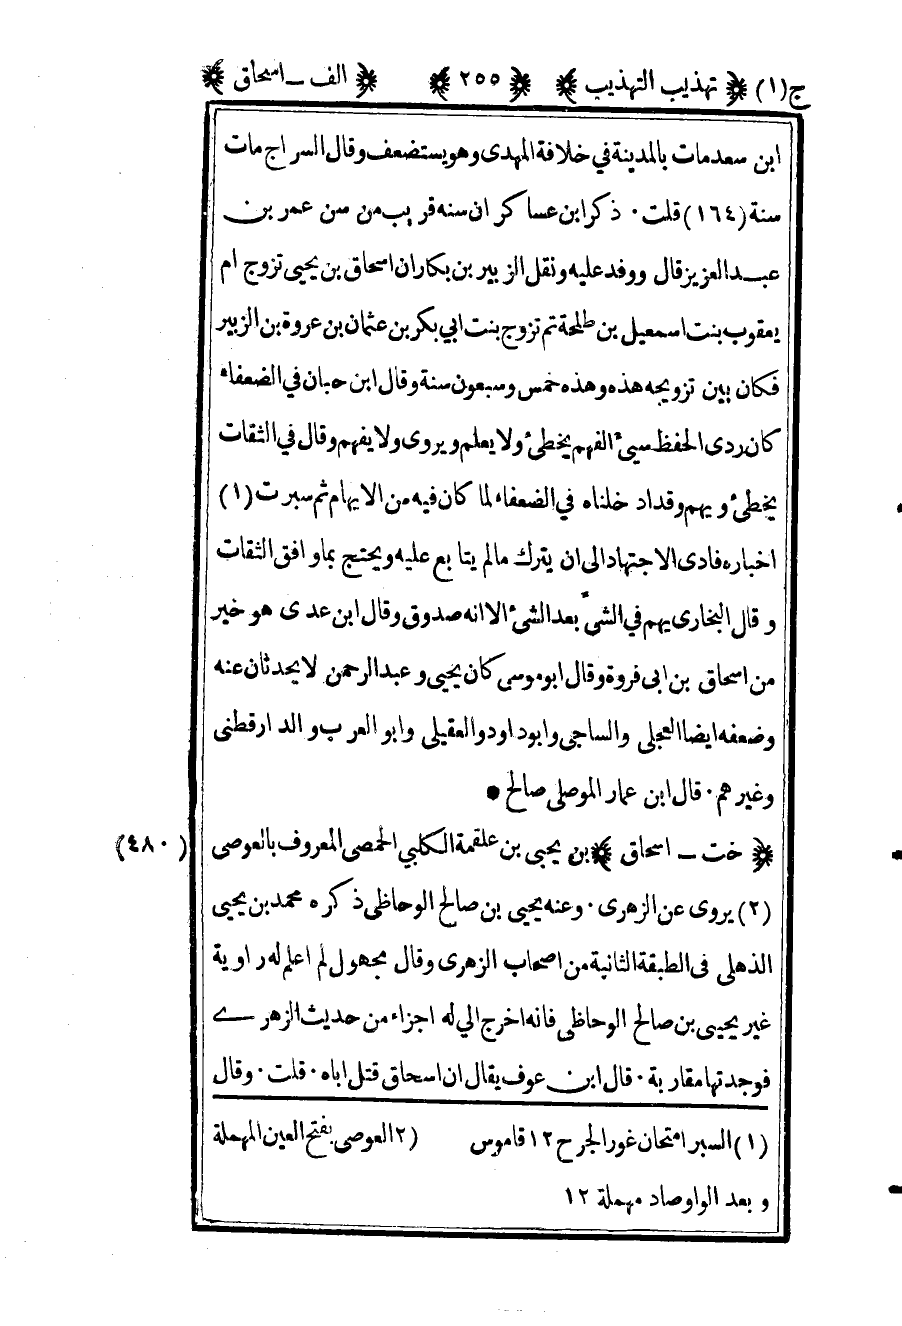 ج(١) ﴿ تهذيب التهذيب ﴾ ﴿ ٢٥٥ ﴾ ﴿ الف ـ اسحاق ﴾
ابن سعد مات بالمدينة في خلافة المهدى وهو يستضعف وقال السراج مات
سنة (١٦٤) قلت ٠ ذكر ابن عساكر ان سنه قريب من سن عمر بن
عبد العزيز قال ووفد عليه ونقل الزبير بن بكار ان اسحاق بن يحيى تزوج ام
يعقوب بنت اسمعيل بن طلحة ثم تزوج بنت ابي بكر بن عثمان بن عروة بن الزبير
فكان بين تزويجه هذه وهذه خمس وسبعون سنة وقال ابن حبان في الضعفاء
كان ردى الحفظ سيئ الفهم يخطئ ولا يعلم ويروى ولا يفهم وقال في الثقات
يخطئ ويهم وقد ادخلناه في الضعفاء لما كان فيه من الايهام ثم سبرت (١)
اخباره فادى الاجتهاد الى ان يترك ما لم يتابع عليه ويحتج بما وافق الثقات
وقال البخارى يهم في الشئ بعد الشئ الا انه صدوق وقال ابن عدى هو خير
من اسحاق بن ابى فروة وقال ابو موسى كان يحيى وعبد الرحمن لا يحدثان عنه
وضعفه ايضا العجلى والساجى وابوداود والعقيلى وابو العرب والدارقطنى
وغيرهم ٠ قال ابن عمار الموصلى صالح ●
﴿ خت ـ اسحاق ﴾ بن يحيى بن علقمة الكلبي الحمصى المعروف بالعوصى (٤٨٠)
(٢) يروى عن الزهرى ٠ وعنه يحيى بن صالح الوحاظى ذكره محمد بن يحيى
الذهلى فى الطبقة الثانية من اصحاب الزهرى وقال مجهول لم اعلم له راوية
غير يحيى بن صالح الوحاظى فانه اخرج الي له اجزاء من حديث الزهرے
فوجدتها مقاربة ٠ قال ابن عوف يقال ان اسحاق قتل اباه ٠ قلت ٠ وقال
(١) السبر امتحان غور الجرح ١٢ قاموس (٢ العوصى بفتح العين المهملة
وبعد الواو صاد مهملة ١٢